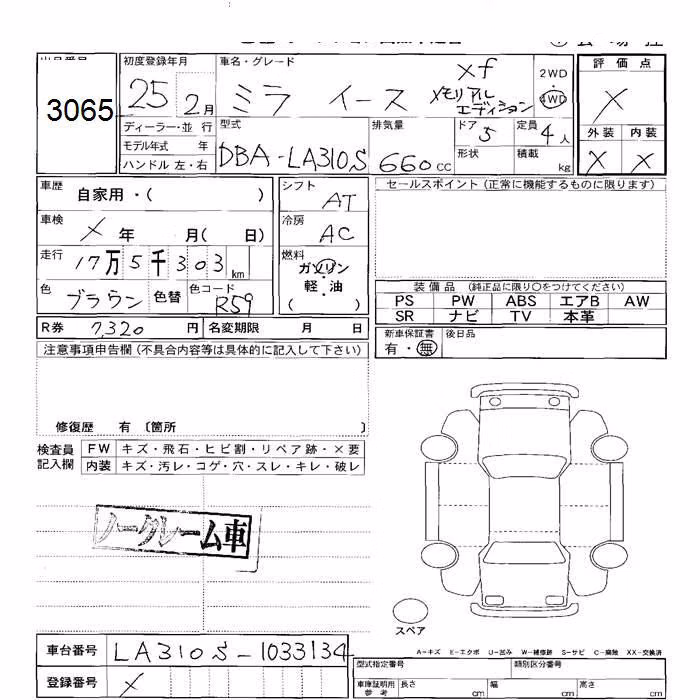 3065
初度登録年月
25 2月
車名・グレード
ミラ イース
xf
メモリアル
エディション
2WD
4WD
評価点
X
外装 内装
X X
ディーラー・並行
モデル年式 年
ハンドル 左・右
型式
DBA-LA310S
排気量
660 CC
ドア 5
形状
定員 4人
積載 kg
車歴 自家用・( )
車検 X 年 月( 日)
走行 17万5千303 km
色 ブラウン 色替 色コード R59
シフト AT
冷房 AC
燃料 ガソリン
軽・油
( )
セールスポイント (正常に機能するものに限ります)
装備品 (純正品に限り○をつけてください)
PS PW ABS エアB AW
SR ナビ TV 本革
R券 7,320 円 名変期限 月 日
新車保証書 後日品
有・無
注意事項申告欄(不具合内容等は具体的に記入して下さい)
修復歴 有 〔箇所 〕
検査員
記入欄
FW キズ・飛石・ヒビ割・リペア跡・×要
内装 キズ・汚レ・コゲ・穴・スレ・キレ・破レ
ノークレーム車
スペア
A-キズ E-エクボ U-凹み W-補修跡 S-サビ C-腐蝕 XX-交換済
車台番号 LA310S-1033134
登録番号 X
型式指定番号 類別区分番号
車庫証明用
参考
長さ cm 幅 cm 高さ cm